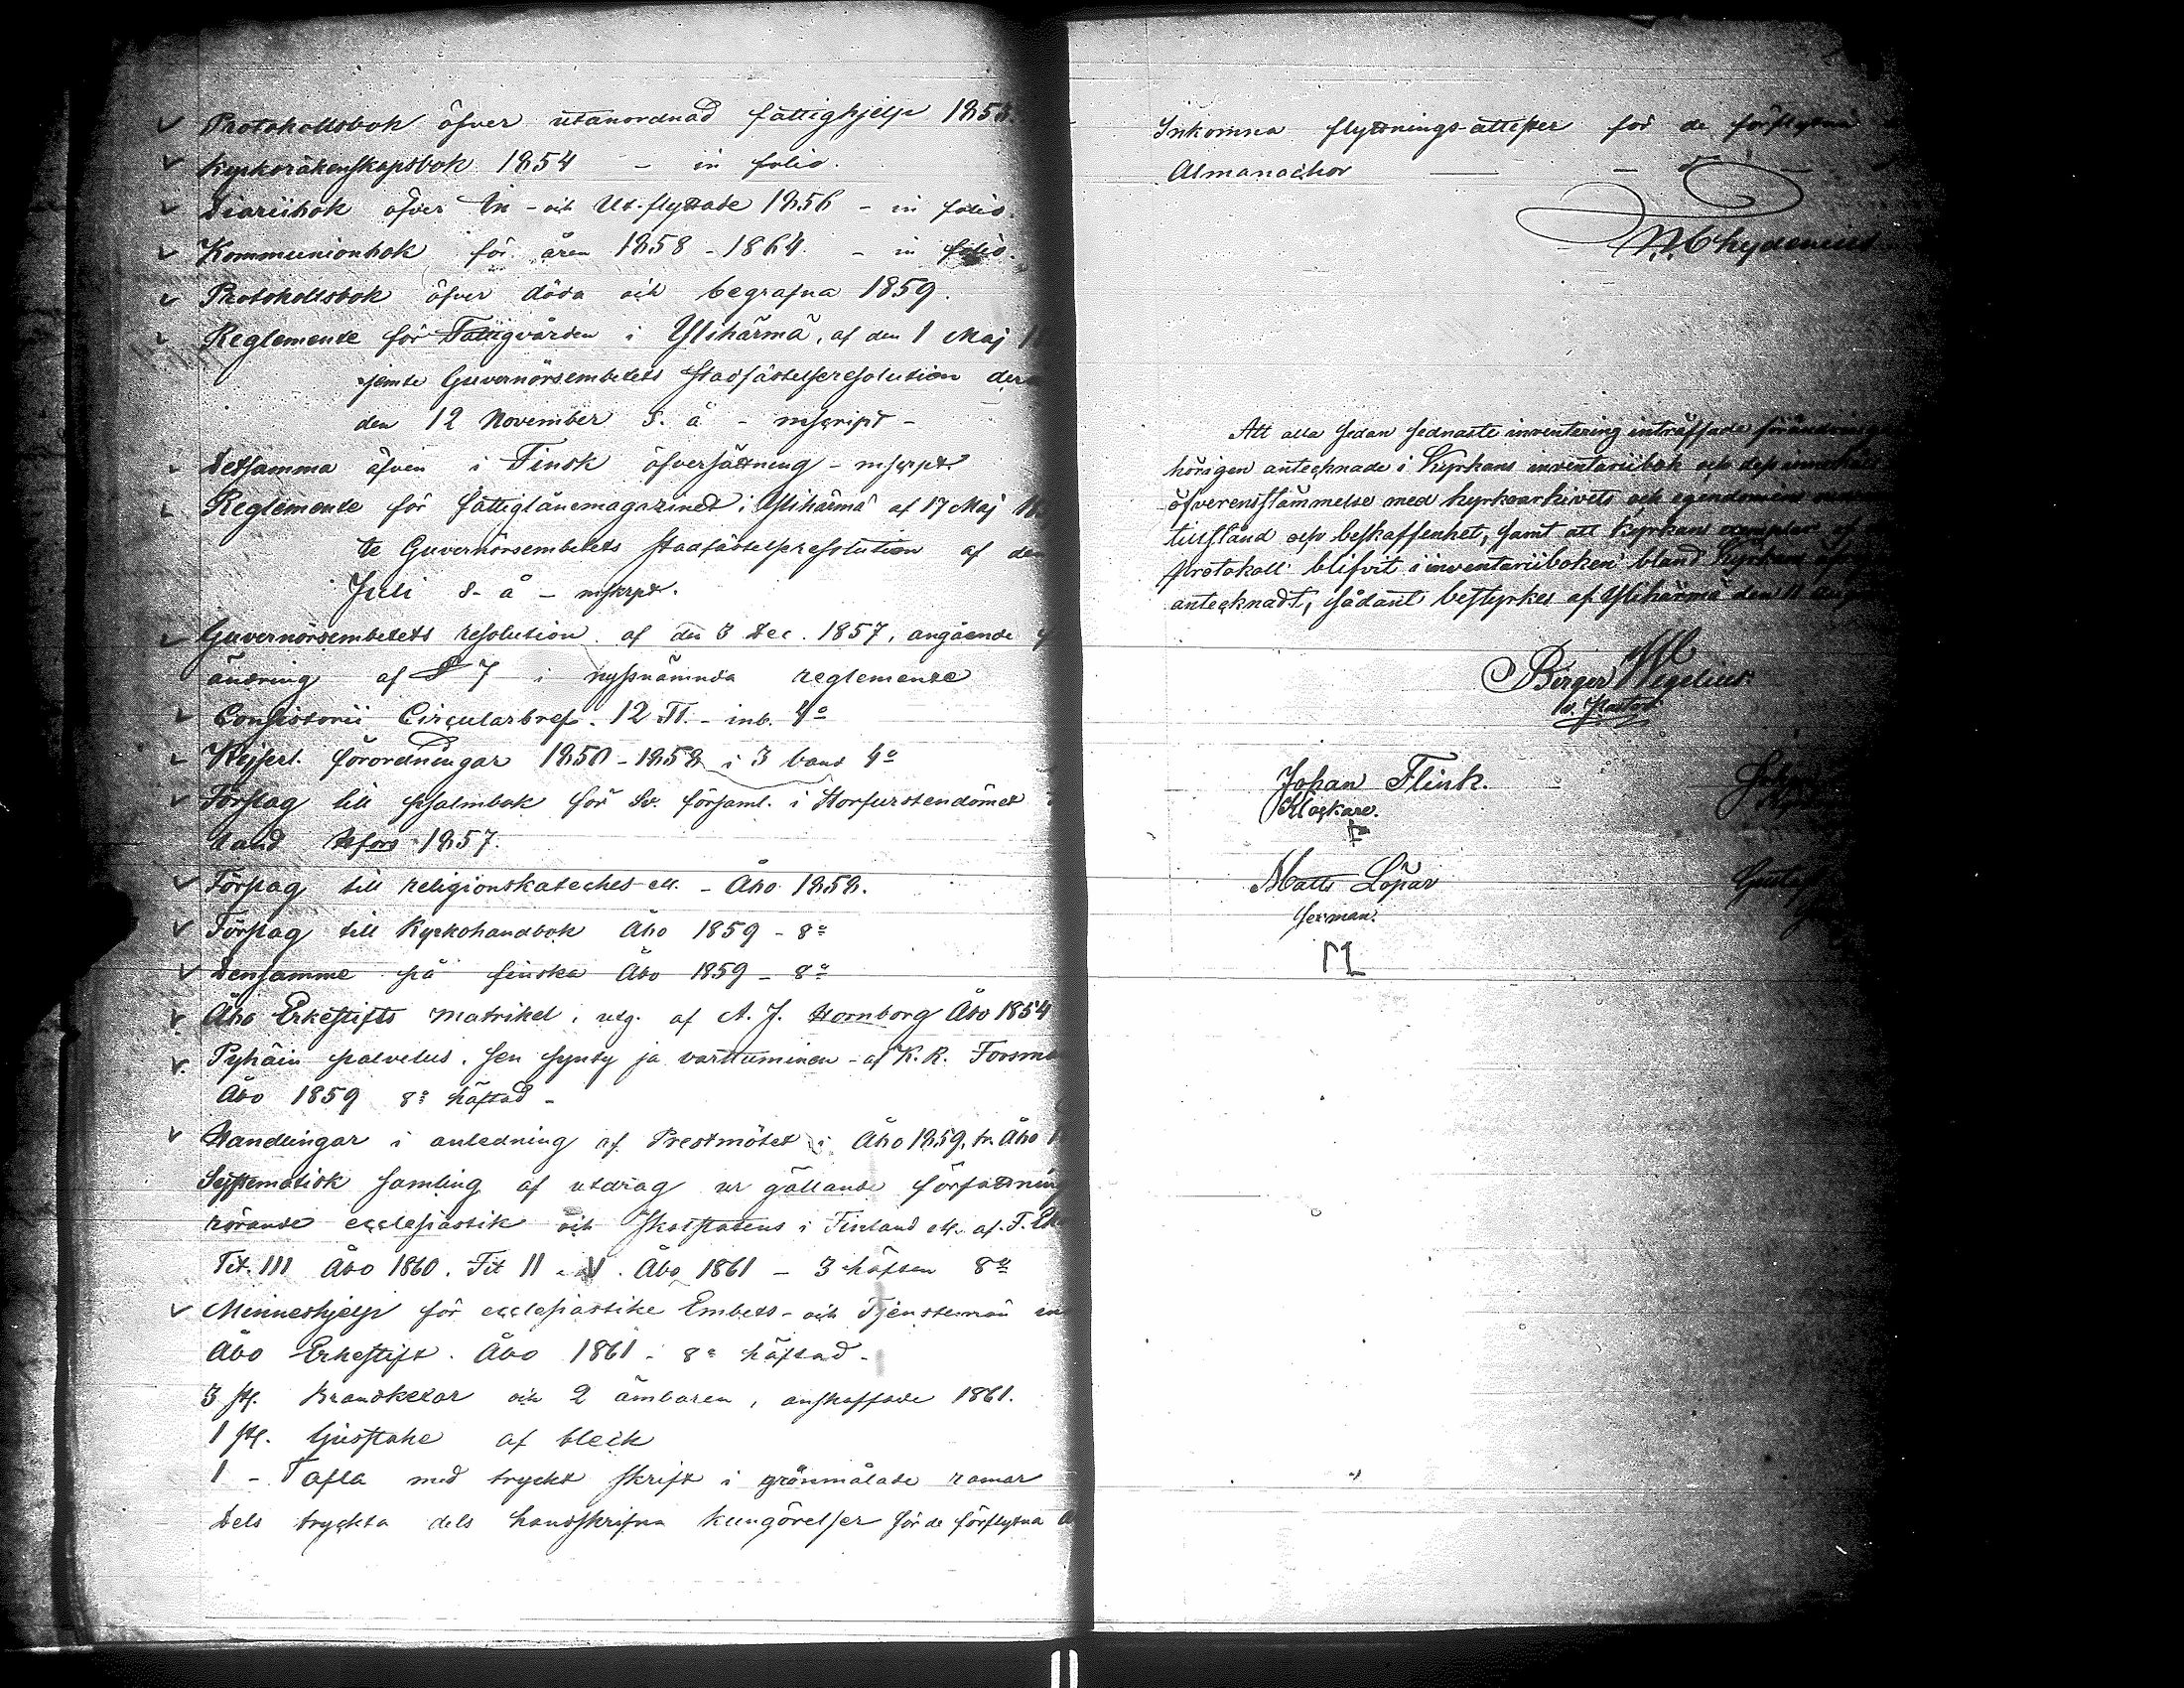 Protokollsbok öfver utanordnad fattighjelp
Kyrkoräkenskapsbok 1854 - in folio.
Diariibok öfver In- och Ut-flyttade 1856 - in folio.
Kommunionbok för åren 1858-1864 - in folio.
Protokollsbok öfver döda och begrafna 1859.
Reglemente för Fattigvården i Ylihärmä, af den 1 Maj
jemte Guvernörsembetets stadfästelseresolution
den 12 November s. å - mscript -
Detsamma äfven i Finsk öfversättning - mscrpt
Reglemente för fattiglånemagazinet i Ylihärmä af 17 Maj
te Guvernörsembetets stadfästelseresolution af den
Juli s. å - mskrpt.
Guvernörsembetets resolution af den 3 Dec. 1857, angående
ändring af § 7 i nyssnämnda reglemente
Consistorii Circulärbref. 12 Tl. - inb. 4o
Kejserl. förordningar 1850-1858 i 3 band 4o
Förslag till psalmbok för Sv. församl. i Storfurstendömet
land Hfors 1857.
Förslag till religionskateches - Åbo 1858.
Förslag till Kyrkohandbok Åbo 1859 - 8o
Densamme på finska Åbo 1859 - 8o
Åbo Erkestifts matrikel, utg. af A. J. Hornborg Åbo 1854
Pyhäin palvelus, sen synty ja varttuminen - af K. R.
Åbo 1859 8o häftad -
Handlingar i anledning af Prestmötet i Åbo 1859, tr. Åbo
Systematisk samling af utdrag ur gällande författning
rörande ecclesiastik och skolstatens i Finland af
Tit. III Åbo 1860. Tit II Åbo 1861 - 3 häften 8o
Minneshjelp för ecclesiastike Embets- och Tjenstemän
Åbo Erkestift. Åbo 1861 - 8o häftad -
3 st. Brandkexar och 2 ämbaren, anskaffade 1861.
1 st. ljusstake af bleck
1 - Tafla med tryckt skrift i grönmålade ramar
Dels tryckta dels handskrifna kungörelser för de förflytna
Inkomna flyttnings-attester för de förflytna
Almanachor - d:o -
Chydenius
Att alla sedan sednaste inventering inträffade
hörigen antecknade i Kyrkans inventariibok och dess
öfverensstämmelse med kyrkoarkivets och egendomens
tillstånd och beskaffenhet, samt att Kyrkans exemplar af
protokoll blifvit i inventariiboken bland Kyrkans
antecknadt, sådant bestyrkes af Ylihärmä den 11
Birger Wegelius
v. Pastor
Johan Flink.
Klockare.
Matts Löpar
Sexman.
Gustaf